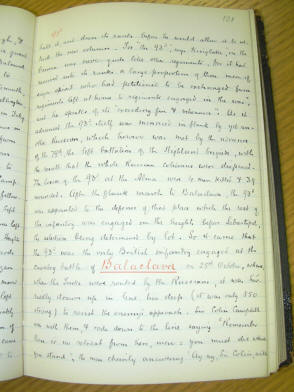 131
93rd
halt it, and dress its ranks, before he would allow it to at-
tack the new column. For the 93rd, says Kinglake, in the
Crimea was never quite like other regiments. For it had
received into its ranks a large proportion of those men of
eager spirit who had petitioned to be exchanged from
regiments left at home to regiments engaged in the war,
and he speaks of its
advanced the 93rd itself was menaced in flank by yet an-
other Russian, which however was met by the advance
of the 79th, the left battalion of the Highland brigade, with
the result that the whole Russian columns were dispersed.
The loss of the 93rd at the Alma was 4 men killed &
wounded. After the flank march to Balaclava, the 93rd
was appointed to the defence of that place whilst the rest of
the infantry was engaged on the heights before Sebastopol,
the selection being determined by lot. So it came that
the 93rd was the only British infantry engaged at the
cavalry battle of Balaclava on 25th October, when
when the Turks were routed by the Russians, it was
drawn up in line two deep (it was only 550
strong) to resist the enemy's approach. Sir Colin Campbell
with them, & rode down the line saying "Remember
there is no retreat from here, men: you must die where
you stand"; the men cheerily answering "Ay, ay, Sir Colin,